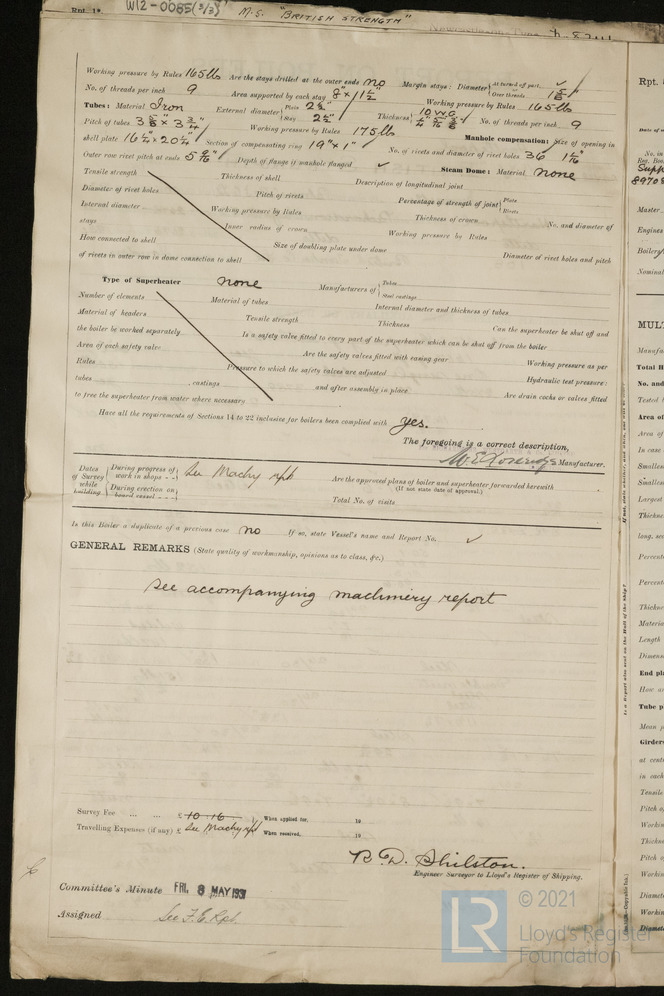 Rpt. 1*.
W12-0085(3/3)
M.S. "BRITISH STRENGTH"
Working pressure by Rules 165lb Are the stays drilled at the outer ends no Margin stays: Diameter { At turned off part, Over threads 1 5/8"
No. of threads per inch 9 Area supported by each stay Working pressure by Rules 165lb
Tubes: Material Iron External diameter { Plain 2½" Stay 2½" Thickness { 10 W.G. No. of threads per inch 9
Pitch of tubes Working pressure by Rules 175lb Manhole compensation: Size of opening in
shell plate 16¼" x 20¼" Section of compensating ring 19" x 1" No. of rivets and diameter of rivet holes 36
Outer row rivet pitch at ends Depth of flange if manhole flanged Steam Dome: Material none
Tensile strength Thickness of shell Description of longitudinal joint
Diameter of rivet holes Pitch of rivets Percentage of strength of joint { Plate Rivets
Internal diameter Working pressure by Rules Thickness of crown No. and diameter of
stays Inner radius of crown Working pressure by Rules
How connected to shell Size of doubling plate under dome Diameter of rivet holes and pitch
of rivets in outer row in dome connection to shell
Type of Superheater none Manufacturers of { Tubes Steel castings
Number of elements Material of tubes Internal diameter and thickness of tubes
Material of headers Tensile strength Thickness Can the superheater be shut off and
the boiler be worked separately Is a safety valve fitted to every part of the superheater which can be shut off from the boiler
Area of each safety valve Are the safety valves fitted with easing gear Working pressure as per
Rules Pressure to which the safety valves are adjusted Hydraulic test pressure:
tubes , castings and after assembly in place Are drain cocks or valves fitted
to free the superheater from water where necessary
Have all the requirements of Sections 14 to 22 inclusive for boilers been complied with yes.
The foregoing is a correct description,
Manufacturer.
Dates of Survey while building { During progress of work in shops - - See Machy rpt Are the approved plans of boiler and superheater forwarded herewith
(If not state date of approval.)
During erection on board vessel - - - Total No. of visits
Is this Boiler a duplicate of a previous case no If so, state Vessel's name and Report No.
GENERAL REMARKS (State quality of workmanship, opinions as to class, &c.)
See accompanying machinery report
Survey Fee ... ... £ 10 : 16 : When applied for, 19
Travelling Expenses (if any) £ See Machy rpt When received, 19
B. D. Shilston.
Engineer Surveyor to Lloyd's Register of Shipping.
Committee's Minute FRI. 8 MAY 1931
Assigned See F.E. Rpt.
© 2021
Lloyd's Register
Foundation
LR
Rpt.
Date of
No. in
Reg. Book
Supp
8970
Master
Engines
Boilers
Nominal
MULT
Manufa
Total H
No. and
Tested
Area of
Area of
In case
Smallest
Smallest
Largest
Thickne
long. se
Percent
Percent
Thickne
Materia
Length
Dimens
End pla
How a
Tube p
Mean p
Girders
at cent
in each
Tensile
Thickne
Pitch o
Workin
Diamet
Workin
Diamet